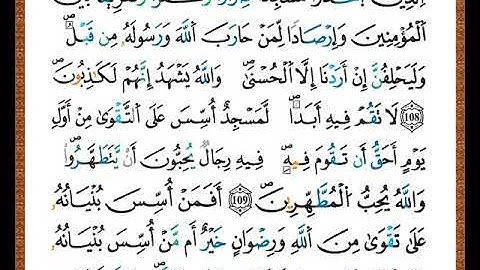 الْمُؤْمِنِينَ وَإِرْصَادًا لِّمَنْ حَارَبَ اللَّهَ وَرَسُولَهُ مِن قَبْلُ
وَلَيَحْلِفُنَّ إِنْ أَرَدْنَا إِلَّا الْحُسْنَىٰ وَاللَّهُ يَشْهَدُ إِنَّهُمْ لَكَاذِبُونَ
108 لَا تَقُمْ فِيهِ أَبَدًا لَّمَسْجِدٌ أُسِّسَ عَلَى التَّقْوَىٰ مِنْ أَوَّلِ
يَوْمٍ أَحَقُّ أَن تَقُومَ فِيهِ فِيهِ رِجَالٌ يُحِبُّونَ أَنْ يَّتَطَهَّرُوا
وَاللَّهُ يُحِبُّ الْمُطَّهِّرِينَ 109 أَفَمَنْ أُسِّسَ بُنْيَانُهُ
عَلَىٰ تَقْوَىٰ مِنَ اللَّهِ وَرِضْوَانٍ خَيْرٌ أَم مَّنْ أُسِّسَ بُنْيَانُهُ